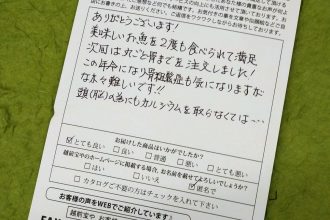 ありがとうございます!
美味しいお魚を2度も食べられて満足
次回は丸ごと骨までを注文しました!
この年令になり骨粗鬆症も気になりますが
なお々難しいです。!!
頭(脳)の為にもカルシウムを取らなくては…
お届けした商品はいかがでしたか?
☑とても良い □良い □普通 □悪い □とても悪い
越前宝やのホームページに掲載する場合、お名前を載せてよろしいでしょうか?
□はい □いいえ ☑匿名で
□カタログご不要の方はチェックを入れて下さい
お客様の声をWEBでご紹介しています